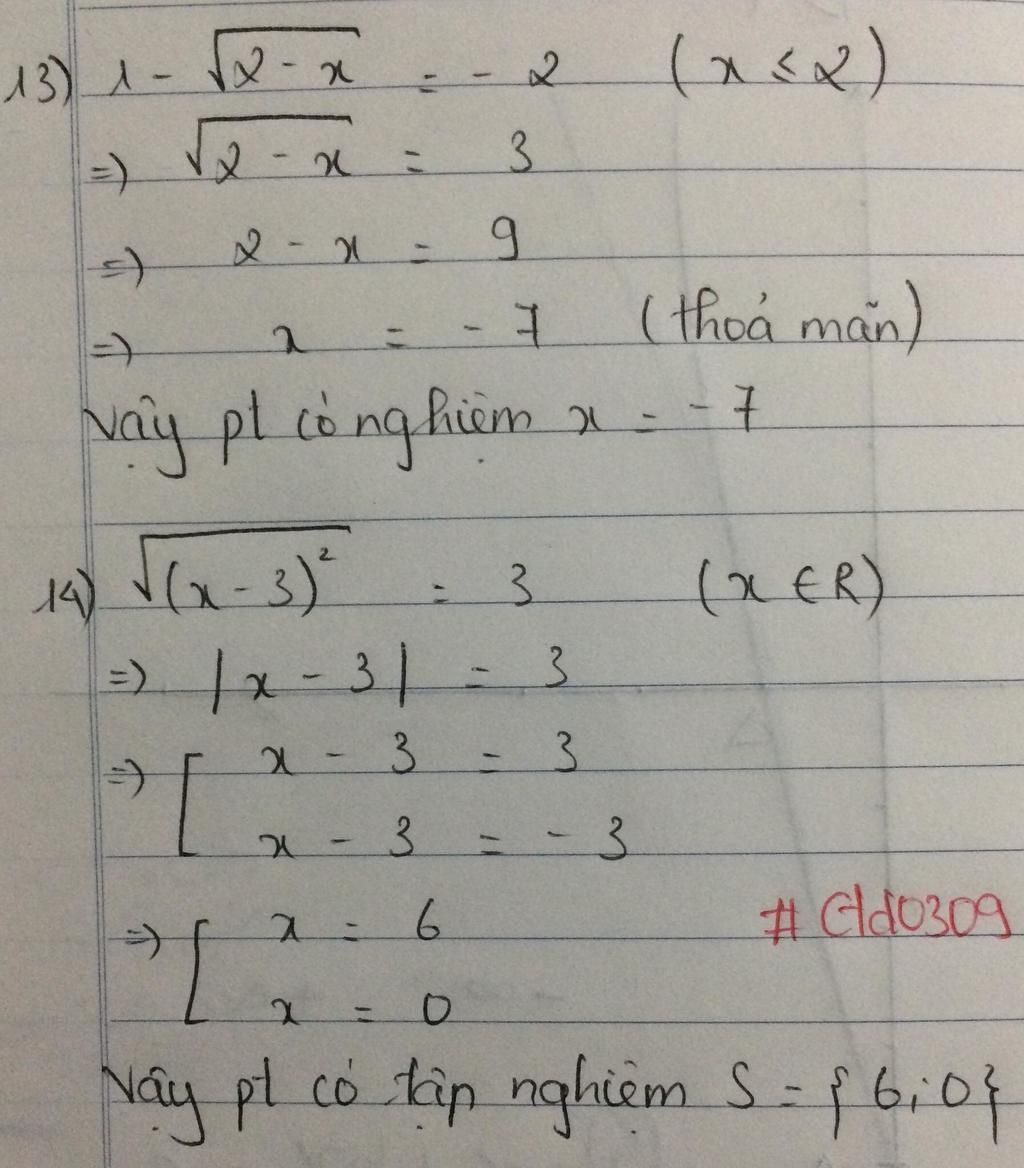 13) 1 - √(2 - x) = - 2 (x ≤ 2)
=) √(2 - x) = 3
=) 2 - x = 9
=) x = - 7 (thoả mãn)
Vậy pt có nghiệm x = - 7
14) √((x - 3)²) = 3 (x ∈ R)
=) |x - 3| = 3
=) [ x - 3 = 3
x - 3 = - 3
=) [ x = 6
#Cld0309
x = 0
Vậy pt có tập nghiệm S = {6;0}